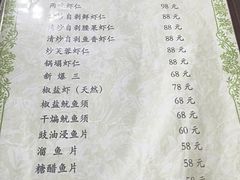 虾仁 98元
清炒自剥鲜虾仁 88元
清炒自剥腰果虾仁 88元
清炒自剥鱼香虾仁 88元
炒芙蓉虾仁 88元
锅塌虾仁 88元
新爆三 88元
椒盐虾(天然) 78元
椒盐鱿鱼须 68元
干煸鱿鱼须 68元
豉油浸鱼片 60元
溜鱼片 58元
糖醋鱼片 58元
元